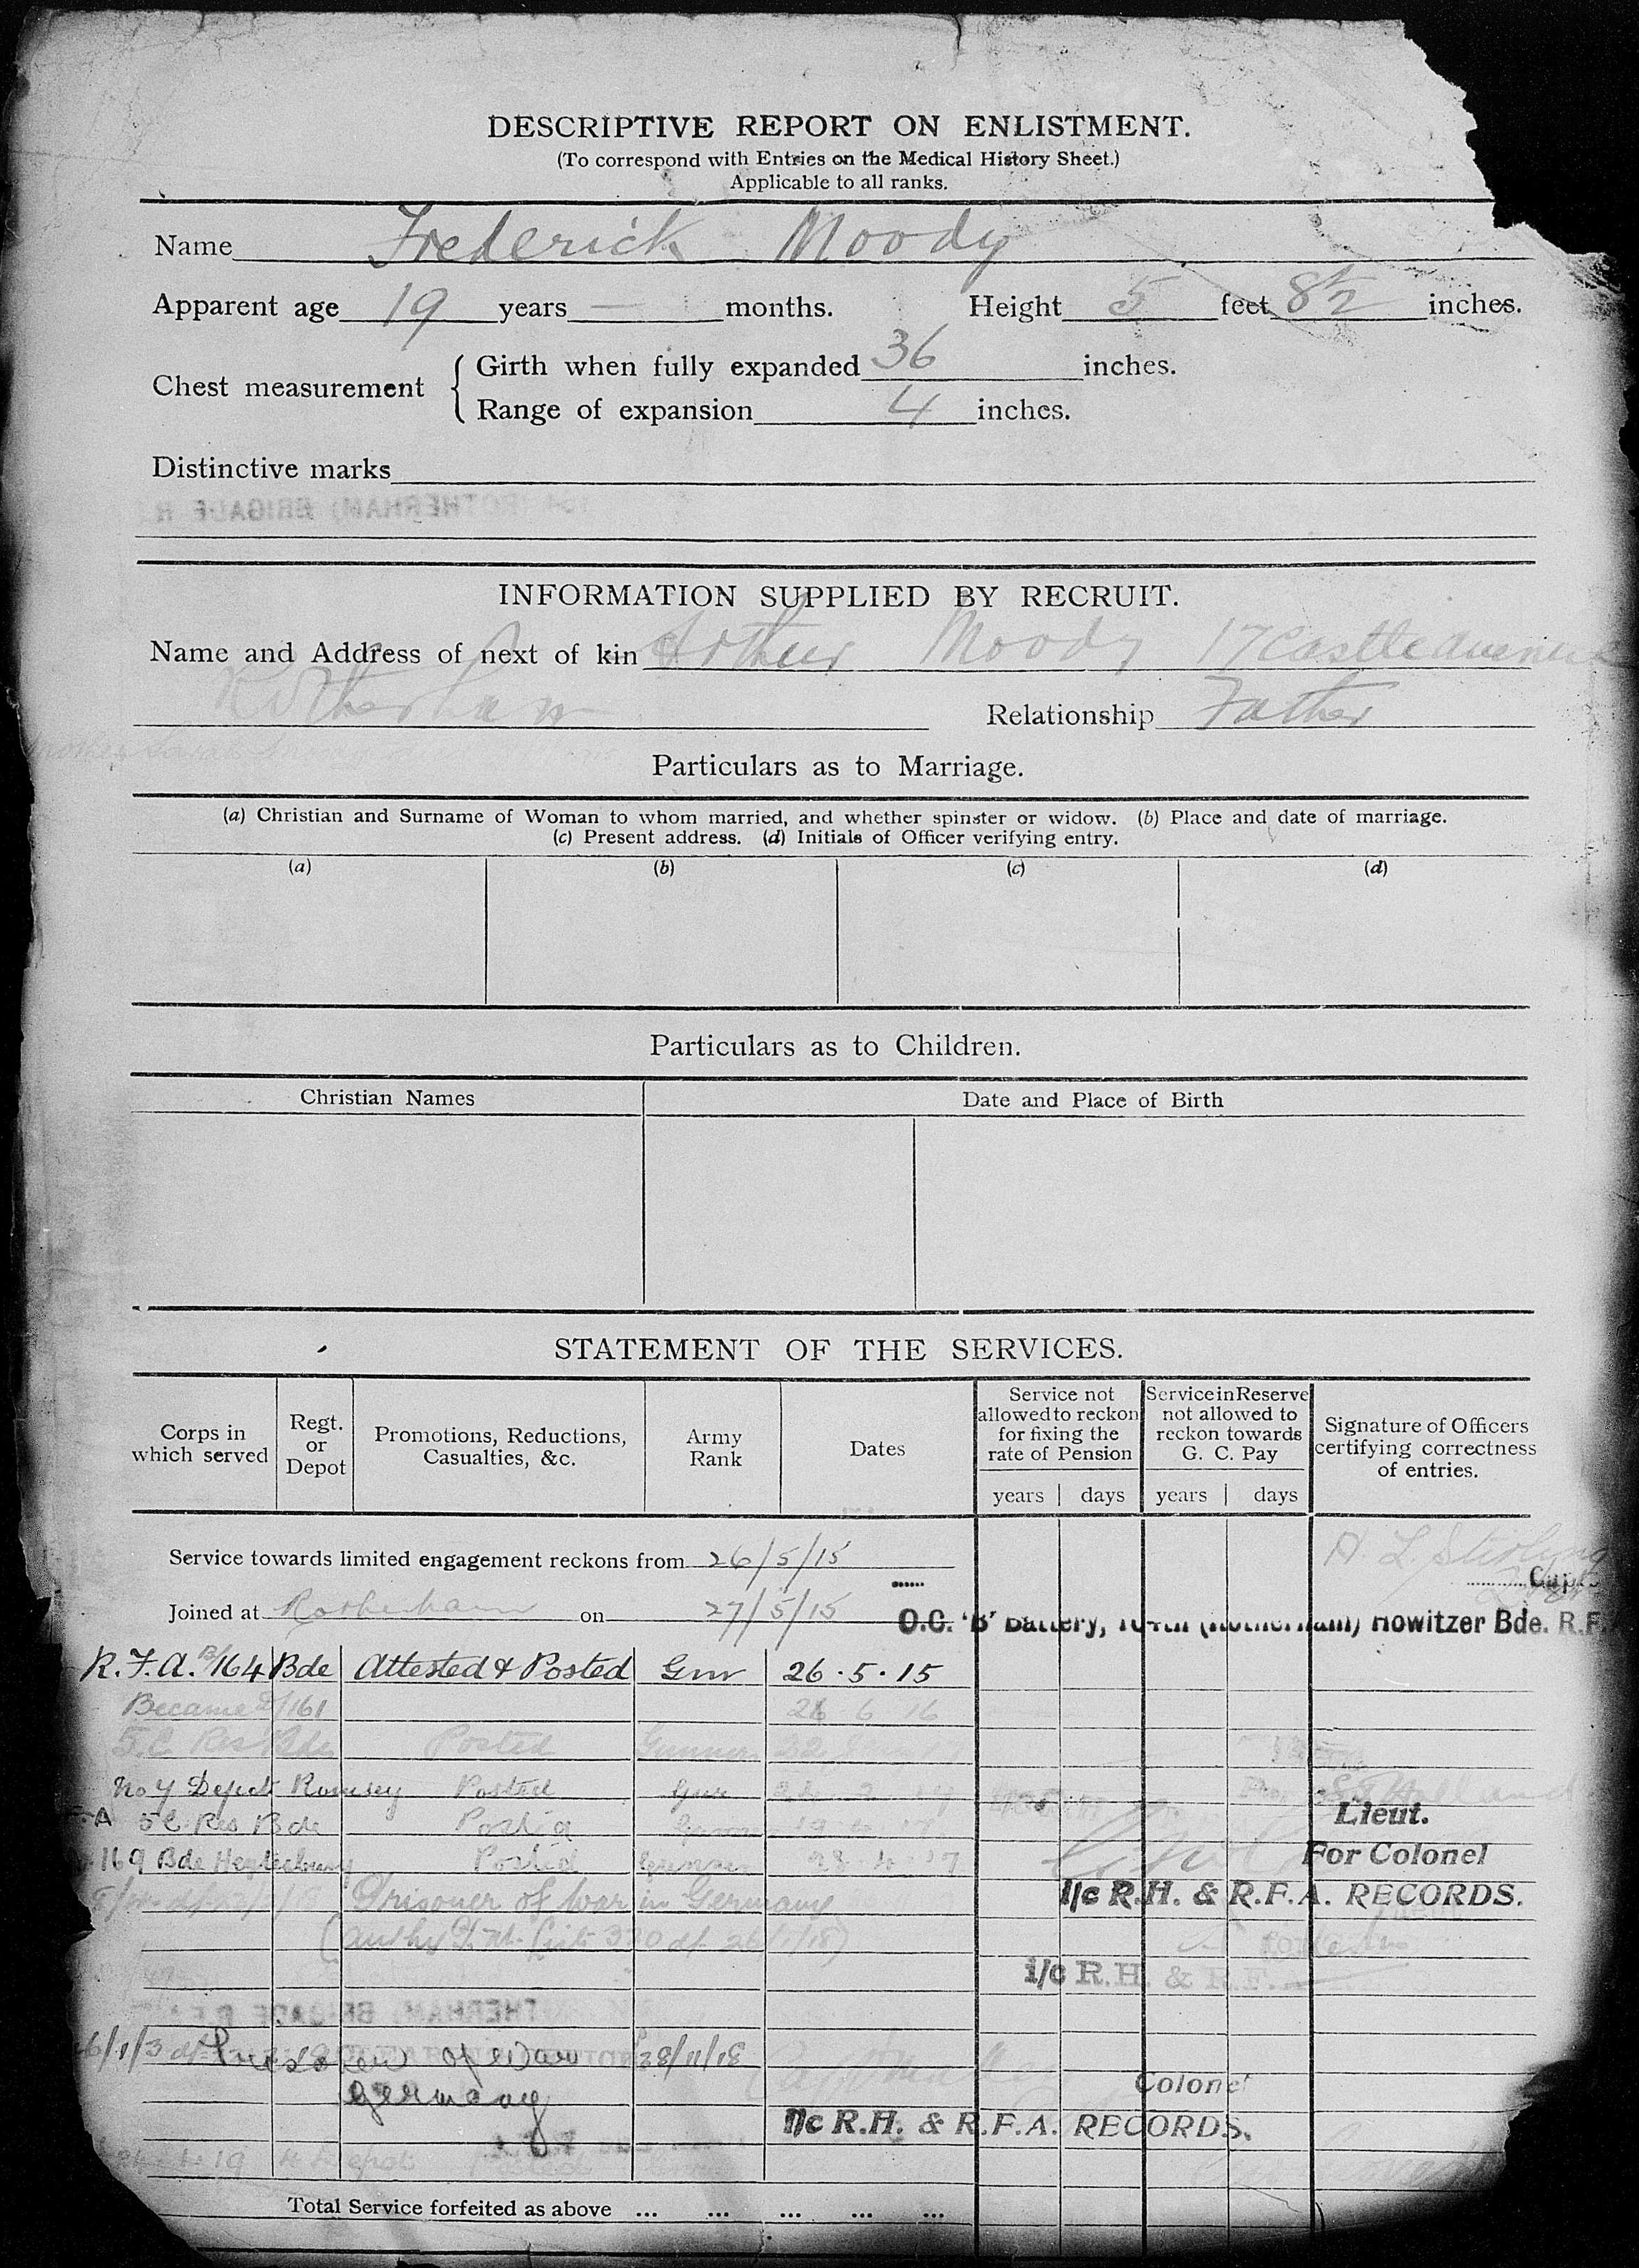 DESCRIPTIVE REPORT ON ENLISTMENT.
(To correspond with Entries on the Medical History Sheet.)
Applicable to all ranks.
Name Frederick Moody
Apparent age 19 years — months. Height 5 feet 8½ inches.
Chest measurement { Girth when fully expanded 36 inches.
Range of expansion 4 inches.
Distinctive marks
(ROTHERHAM) BRIGADE R
INFORMATION SUPPLIED BY RECRUIT.
Name and Address of next of kin Arthur Moody 17 Castle Avenue
Rotherham Relationship Father
Mother Sarah
Particulars as to Marriage.
(a) Christian and Surname of Woman to whom married, and whether spinster or widow. (b) Place and date of marriage.
(c) Present address. (d) Initials of Officer verifying entry.
(a) (b) (c) (d)
Particulars as to Children.
Christian Names Date and Place of Birth
STATEMENT OF THE SERVICES.
Corps in which served Regt. or Depot Promotions, Reductions, Casualties, &c. Army Rank Dates Service not allowed to reckon for fixing the rate of Pension Service in Reserve not allowed to reckon towards G. C. Pay Signature of Officers certifying correctness of entries.
years days years days
Service towards limited engagement reckons from 26/5/15 H L Stirling
Capt
Joined at Rotherham on 27/5/15 O.C. 'B' Battery, 164th (Rotherham) Howitzer Bde. R.F.A
R.F.A. B/164 Bde Attested & Posted Gnr 26.5.15
Became /161 26 6 16
5.C Res Bde Posted Gunner 22
No 4 Depot Romsey Posted Gnr
A 5C Res Bde Posted Gunner 19
Lieut.
169 Bde Heytesbury Posted Gunner 28 17
For Colonel
Prisoner of War in Germany
I/c R.H. & R.F.A. RECORDS.
(Authy List 330 d/ 26/1/18)
i/c R.H. & R.F.
THERHAM) BRIGADE R.F.A
Prisoner of War 28/11/18
Germany
Colonel
I/c R.H. & R.F.A. RECORDS.
4.19 Depot
Total Service forfeited as above ... ... ... ... ...